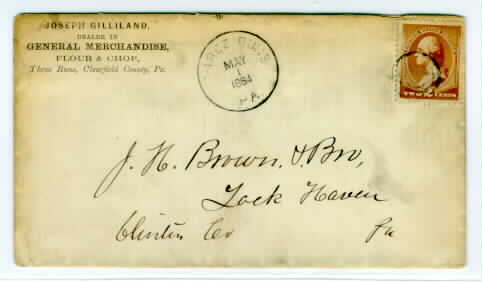 JOSEPH GILLILAND,
DEALER IN
GENERAL MERCHANDISE,
FLOUR & CHOP,
Three Runs, Clearfield County, Pa.
THREE RUNS
MAY
1
1884
PA.
TWO 2 CENTS
J. H. Brown & Bro,
Lock Haven
Clinton Co
Pa